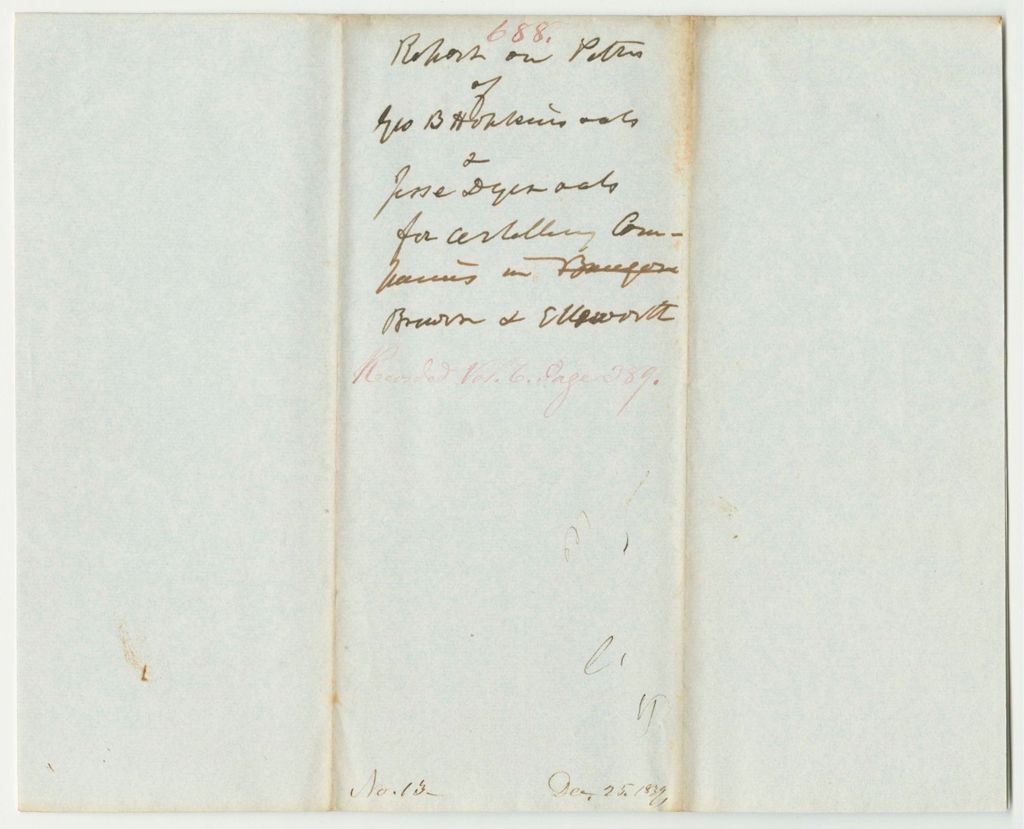 688.
Report on Petns
of
Geo B Hopkins & als
&
Jesse Dyer & als
for establing Com-
panies in Bangor
Brewer & Ellsworth
Recorded Vol. 6. Page 389.
No. 13
Dec. 25. 1839,